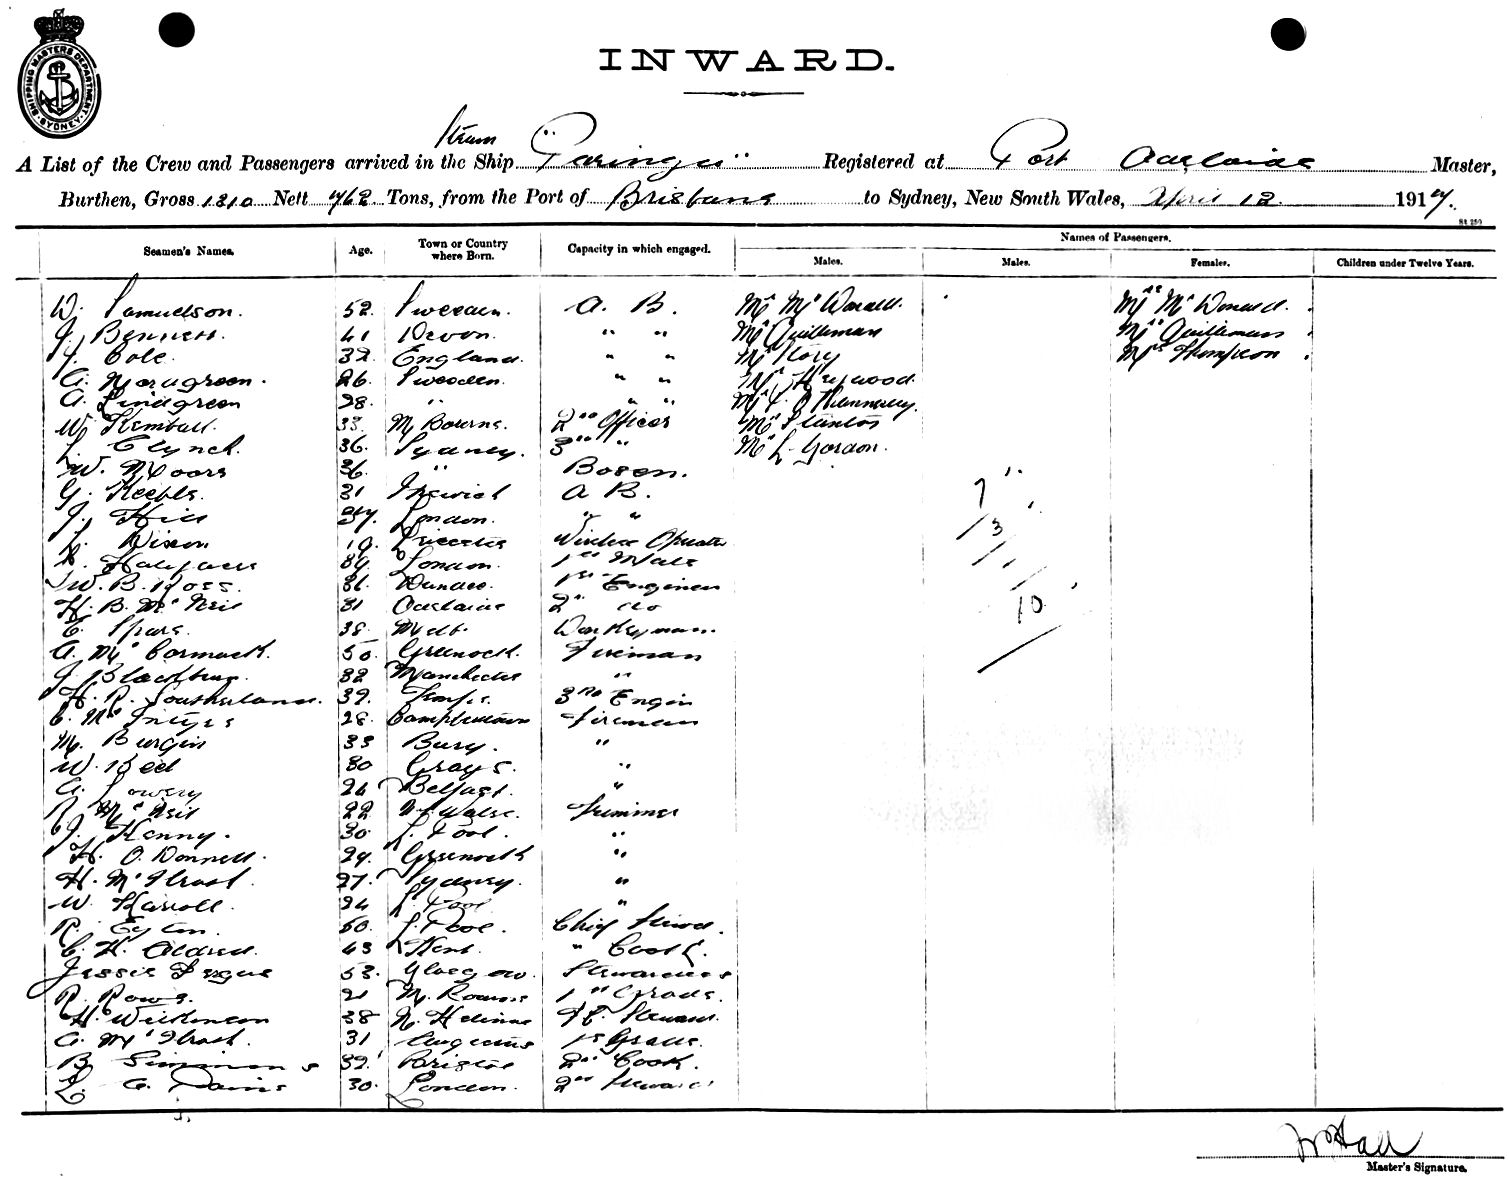 SHIPPING MASTERS DEPARTMENT. SYDNEY.
INWARD.
Steam
A List of the Crew and Passengers arrived in the Ship "Paringa" Registered at Port Adelaide Master,
Burthen, Gross 1310 Nett 762 Tons, from the Port of Brisbane to Sydney, New South Wales, April 12 1914.
Names of Passengers.
Seamen's Names. Age. Town or Country where Born. Capacity in which engaged. Males. Males. Females. Children under Twelve Years.
W. Samuelson. 52. Sweeden. A. B. Mr McDonald. Mrs McDonald.
J. Bennett. 41 Devon. " " Mr Quilliman Mrs Quilliman
J. Cole. 32. England. " " Mr Story Mrs Thompson
A. Nordgreen. 26. Sweeden. " " Mr Heywood.
A. Lindgreen 28. " " "
W. Kemball. 33. Melbourne. 2nd Officer Mr Stanton
L. Clynch. 36. Sydney. 3rd " Mr L. Gordon.
W. Moors 36. " Bosen.
G. Keeble. 31 Ipswich A B.
J. Hill 37. London. " "
Dixon 19. Leicester Wireless Operator
39. London. 1st Mate
W. B. Ross. 36. Dundee. 1st Engineer
H. B. McNeil 31 Adelaide 2nd do
C. Spurs. 38. Melb. Donkeyman.
A. McCormack. 50. Greenock. Fireman
J. Blackburn. 32 Manchester "
H. R. Southerland. 39. 3rd Engin
C. McIntyre 28. Campbeltown Fireman
M. Burgin 33 Bury. "
W. Reed 30 Grays. "
A. Lowery 24 Belfast. "
R. McNeil 22 Trimmer
J. Kenny. 30. L. Pool. "
H. O. Donnell. 29. Greenock "
H. McGrath. 27. Sydney. "
W. Carroll. 24 L. Pool "
R. Eyton. 50. L. Pool. Chief Steward.
C. H. Aldred. 43 Kent. " Cook.
Jessie Fergus 53. Glasgow. Stewardess
R. Rowe. 21 1st Grade.
H. Wilkinson 38 Steward.
A. McGrath. 31 1st Grade.
B. Simmons 32. Bristol 2nd Cook.
L. G. Davis 30. London. 2nd Steward
7
3
10
Master's Signature.